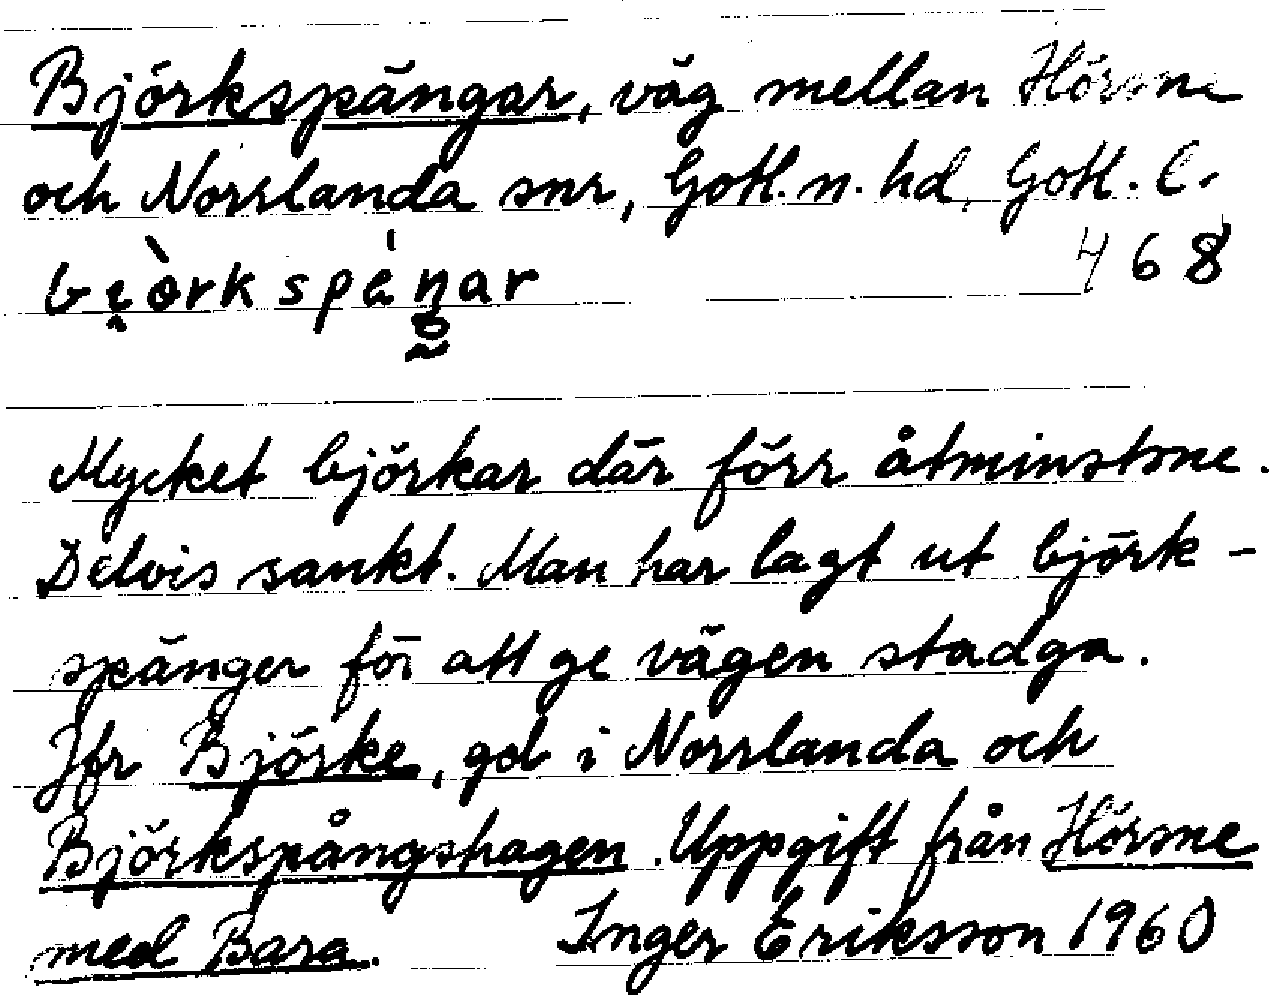 Björkspängar, väg mellan Hörsne
och Norrlanda snr, Gotl. n. hd, Gotl. l.
468
Mycket björkar där förr åtminstone.
Delvis sankt. Man har lagt ut björk-
spänger för att ge vägen stadga.
Jfr Björke, gd i Norrlanda och
Björkspångshagen. Uppgift från Hörsne
med Bara. Inger Eriksson 1960